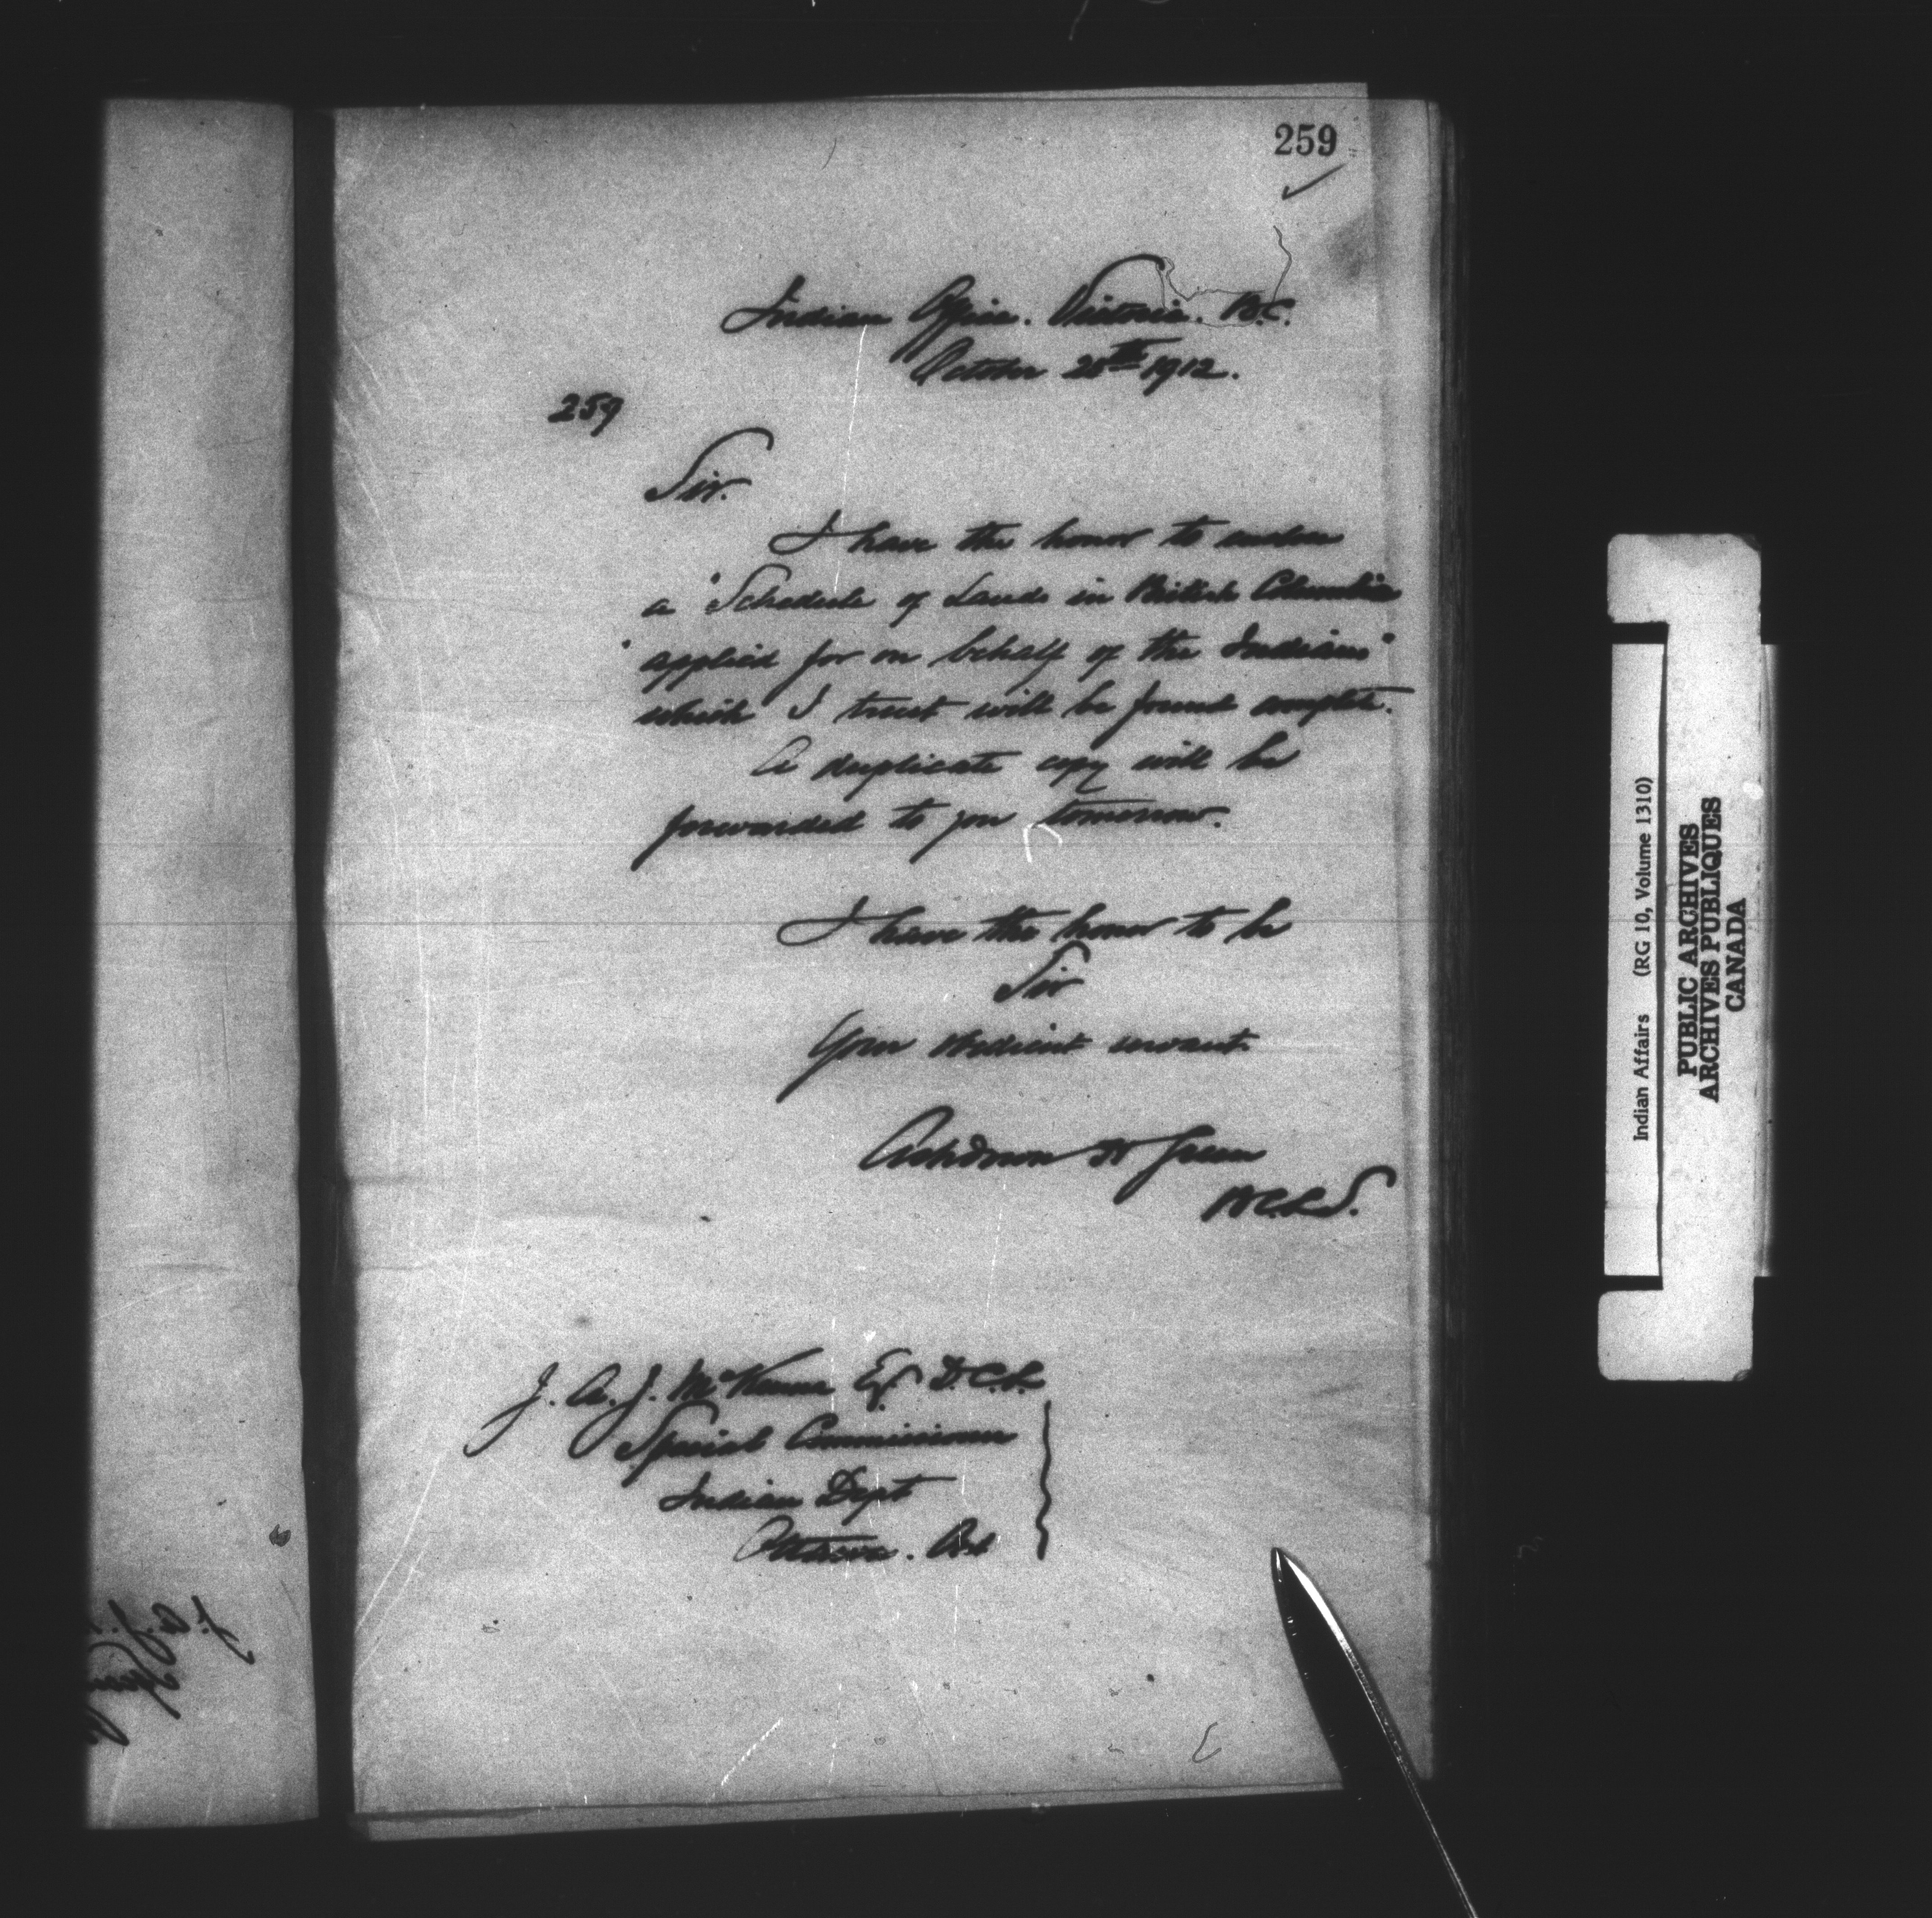 259
Indian Office. Victoria. B.C.
October 25th 1912.
259
Sir.
I have the honor to enclose
a "Schedule of Lands in British Columbia
"applied for on behalf of the Indians"
which I trust will be found complete.
A duplicate copy will be
forwarded to you tomorrow.
I have the honor to be
Sir
Your obedient servant.
Ashdown H Green
B.C.L.S.
J. A. J. McKenna Esq
Special Commissioner
Indian Dept
Ottawa. Ont
Indian Affairs (RG 10, Volume 1310)
PUBLIC ARCHIVES
ARCHIVES PUBLIQUES
CANADA